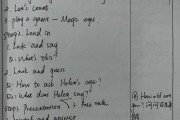 2. Let's count
3. play a game — Magic eyes
Step 2. Lead in
1. Look and say
Q: What's this?
2. Look and guess
Q: How to ask Helen's age?
Q: What does Helen say?
Step 3 Presentation
1. free talk
and answer
Q: How old are you?